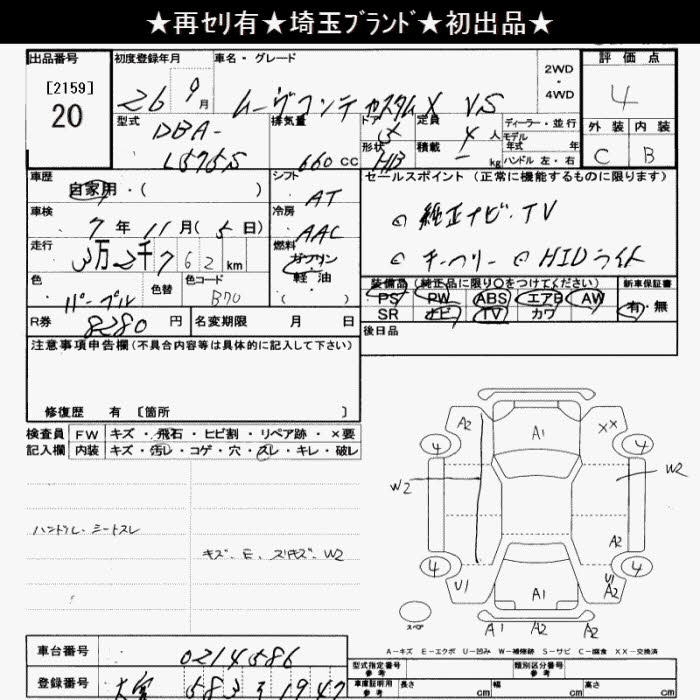 ★再セリ有★埼玉ブランド★初出品★
出品番号 初度登録年月 車名・グレード 2WD・4WD 評価点
[2159]
20 26 9月 ムーヴコンテ カスタムX VS 4
型式 排気量 ドア 定員 ディーラー・並行 外装 内装
DBA- 5 4人 モデル年式 年
L575S 660 CC 形状 HB 積載 - kg ハンドル 左・右 C B
車歴 シフト セールスポイント (正常に機能するものに限ります)
自家用・( ) AT
車検 冷房 純正ナビ・TV
7年 11月 (5日) AAC
走行 燃料 キーフリー HIDライト
3万2千762km ガソリン
軽油
( )
色 色替 色コード 装備品 (純正品に限り○をつけてください) 新車保証書
パープル B70 PS PW ABS エアB AW 有・無
SR ナビ TV カワ
R券 8280円 名変期限 月 日 後日品
注意事項申告欄 (不具合内容等は具体的に記入して下さい)
修復歴 有 〔箇所 〕
検査員 FW キズ・飛石・ヒビ割・リペア跡・×要
記入欄 内装 キズ・汚レ・コゲ・穴・スレ・キレ・破レ
A2 A1 XX
4 4
W2 W2
ハンドル・シートスレ
キズ・E・スリキズ・W2
A2
4 4
U1 A1 U1 A2
スペア
A1 A2 A2
A-キズ E-エクボ U-凹み W-補修跡 S-サビ C-腐食 XX-交換済
車台番号 0214586 型式指定番号 参考 類別区分番号 参考
登録番号 大宮 583 1947 車庫証明用 参考 長さ cm 幅 cm 高さ cm